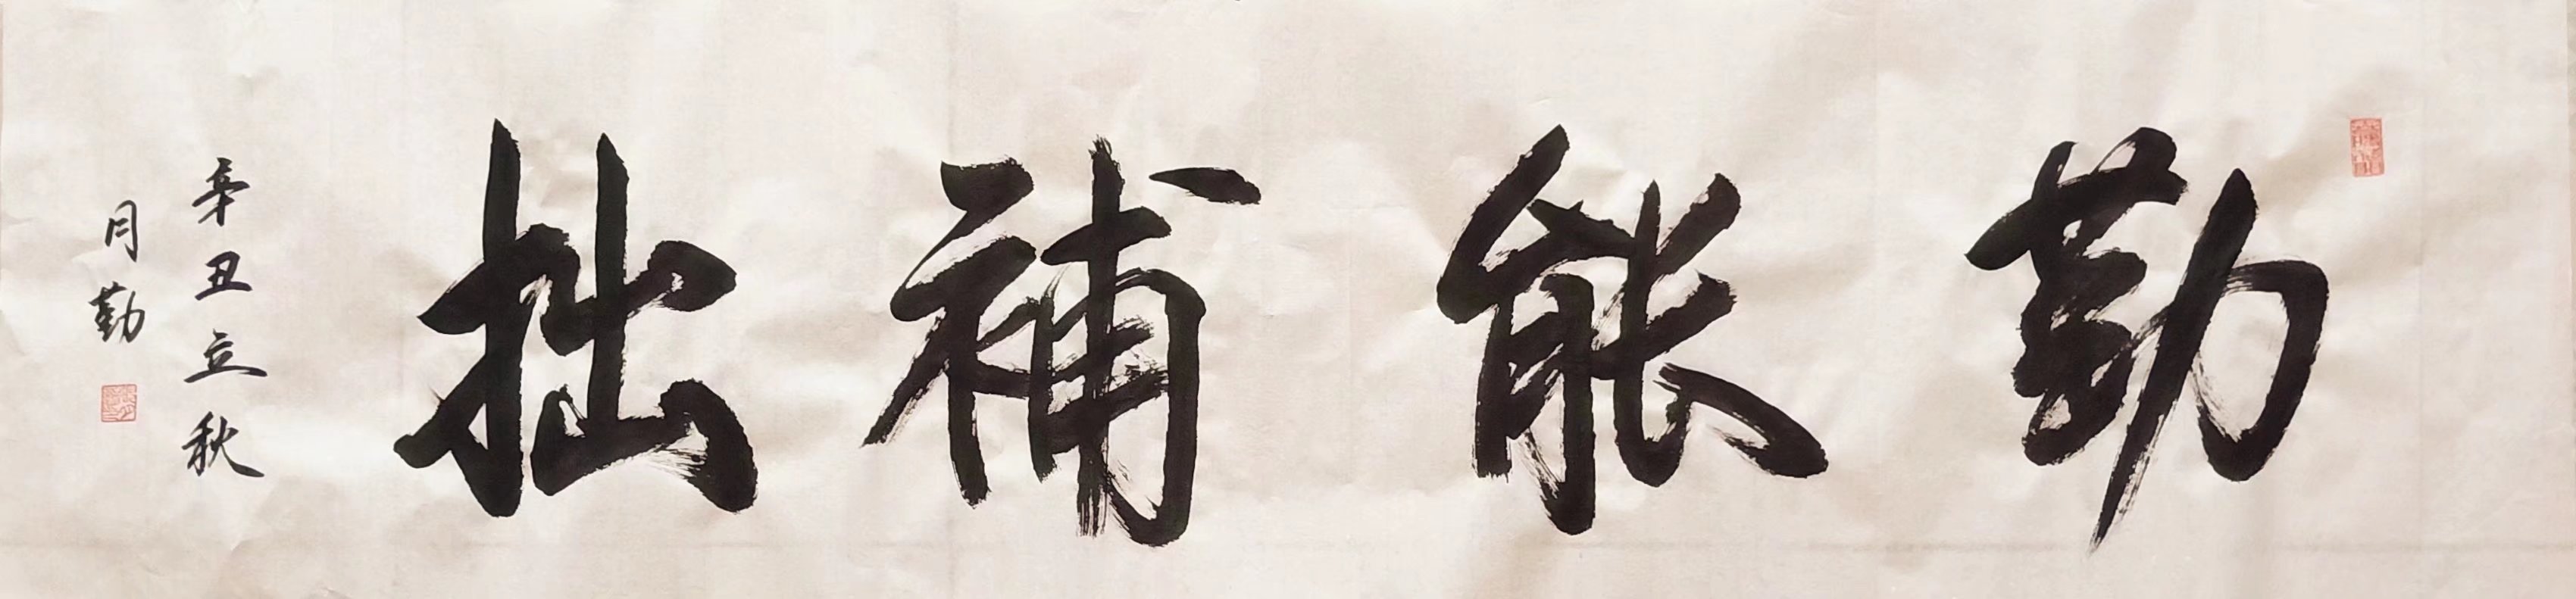 勤能補拙
辛丑立秋
月勤